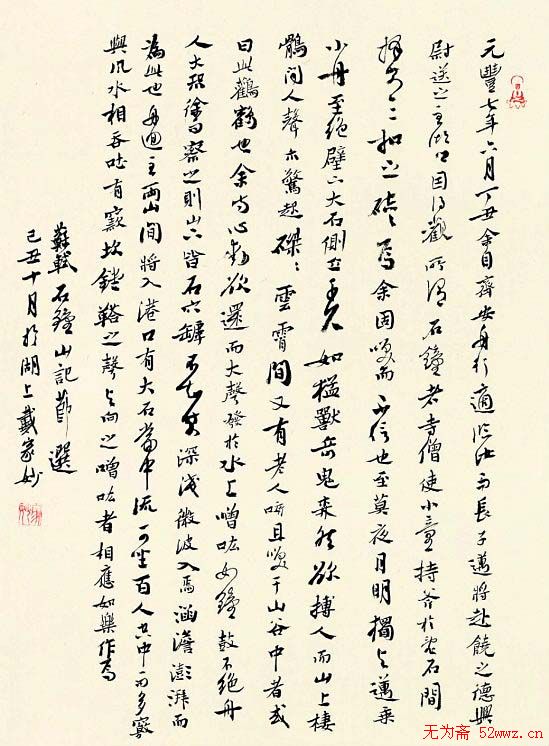 元豐七年六月丁丑余自齊安舟行適臨汝而長子邁將赴饒之德興
尉送之至湖口因得觀所謂石鐘者寺僧使小童持斧於亂石間
擇其二扣之硿〻焉余固笑而不信也至莫夜月明獨與邁乘
小舟至絕壁下大石側立千尺如猛獸奇鬼森然欲搏人而山上棲
鶻聞人聲亦驚起磔〻雲霄間又有老人咳且笑于山谷中者或
曰此鸛鶴也余方心動欲還而大聲發於水上噌吰如鐘鼓不絕舟
人大恐徐而察之則山下皆石穴罅不知其深淺微波入焉涵澹澎湃而
為此也舟迴至兩山間將入港口有大石當中流可坐百人空中而多竅
與風水相吞吐有窾坎鏜鞳之聲與向之噌吰者相應如樂作焉
蘇軾石鐘山記節選
己丑十月於湖上戴家妙
无为斋 52wwz.cn